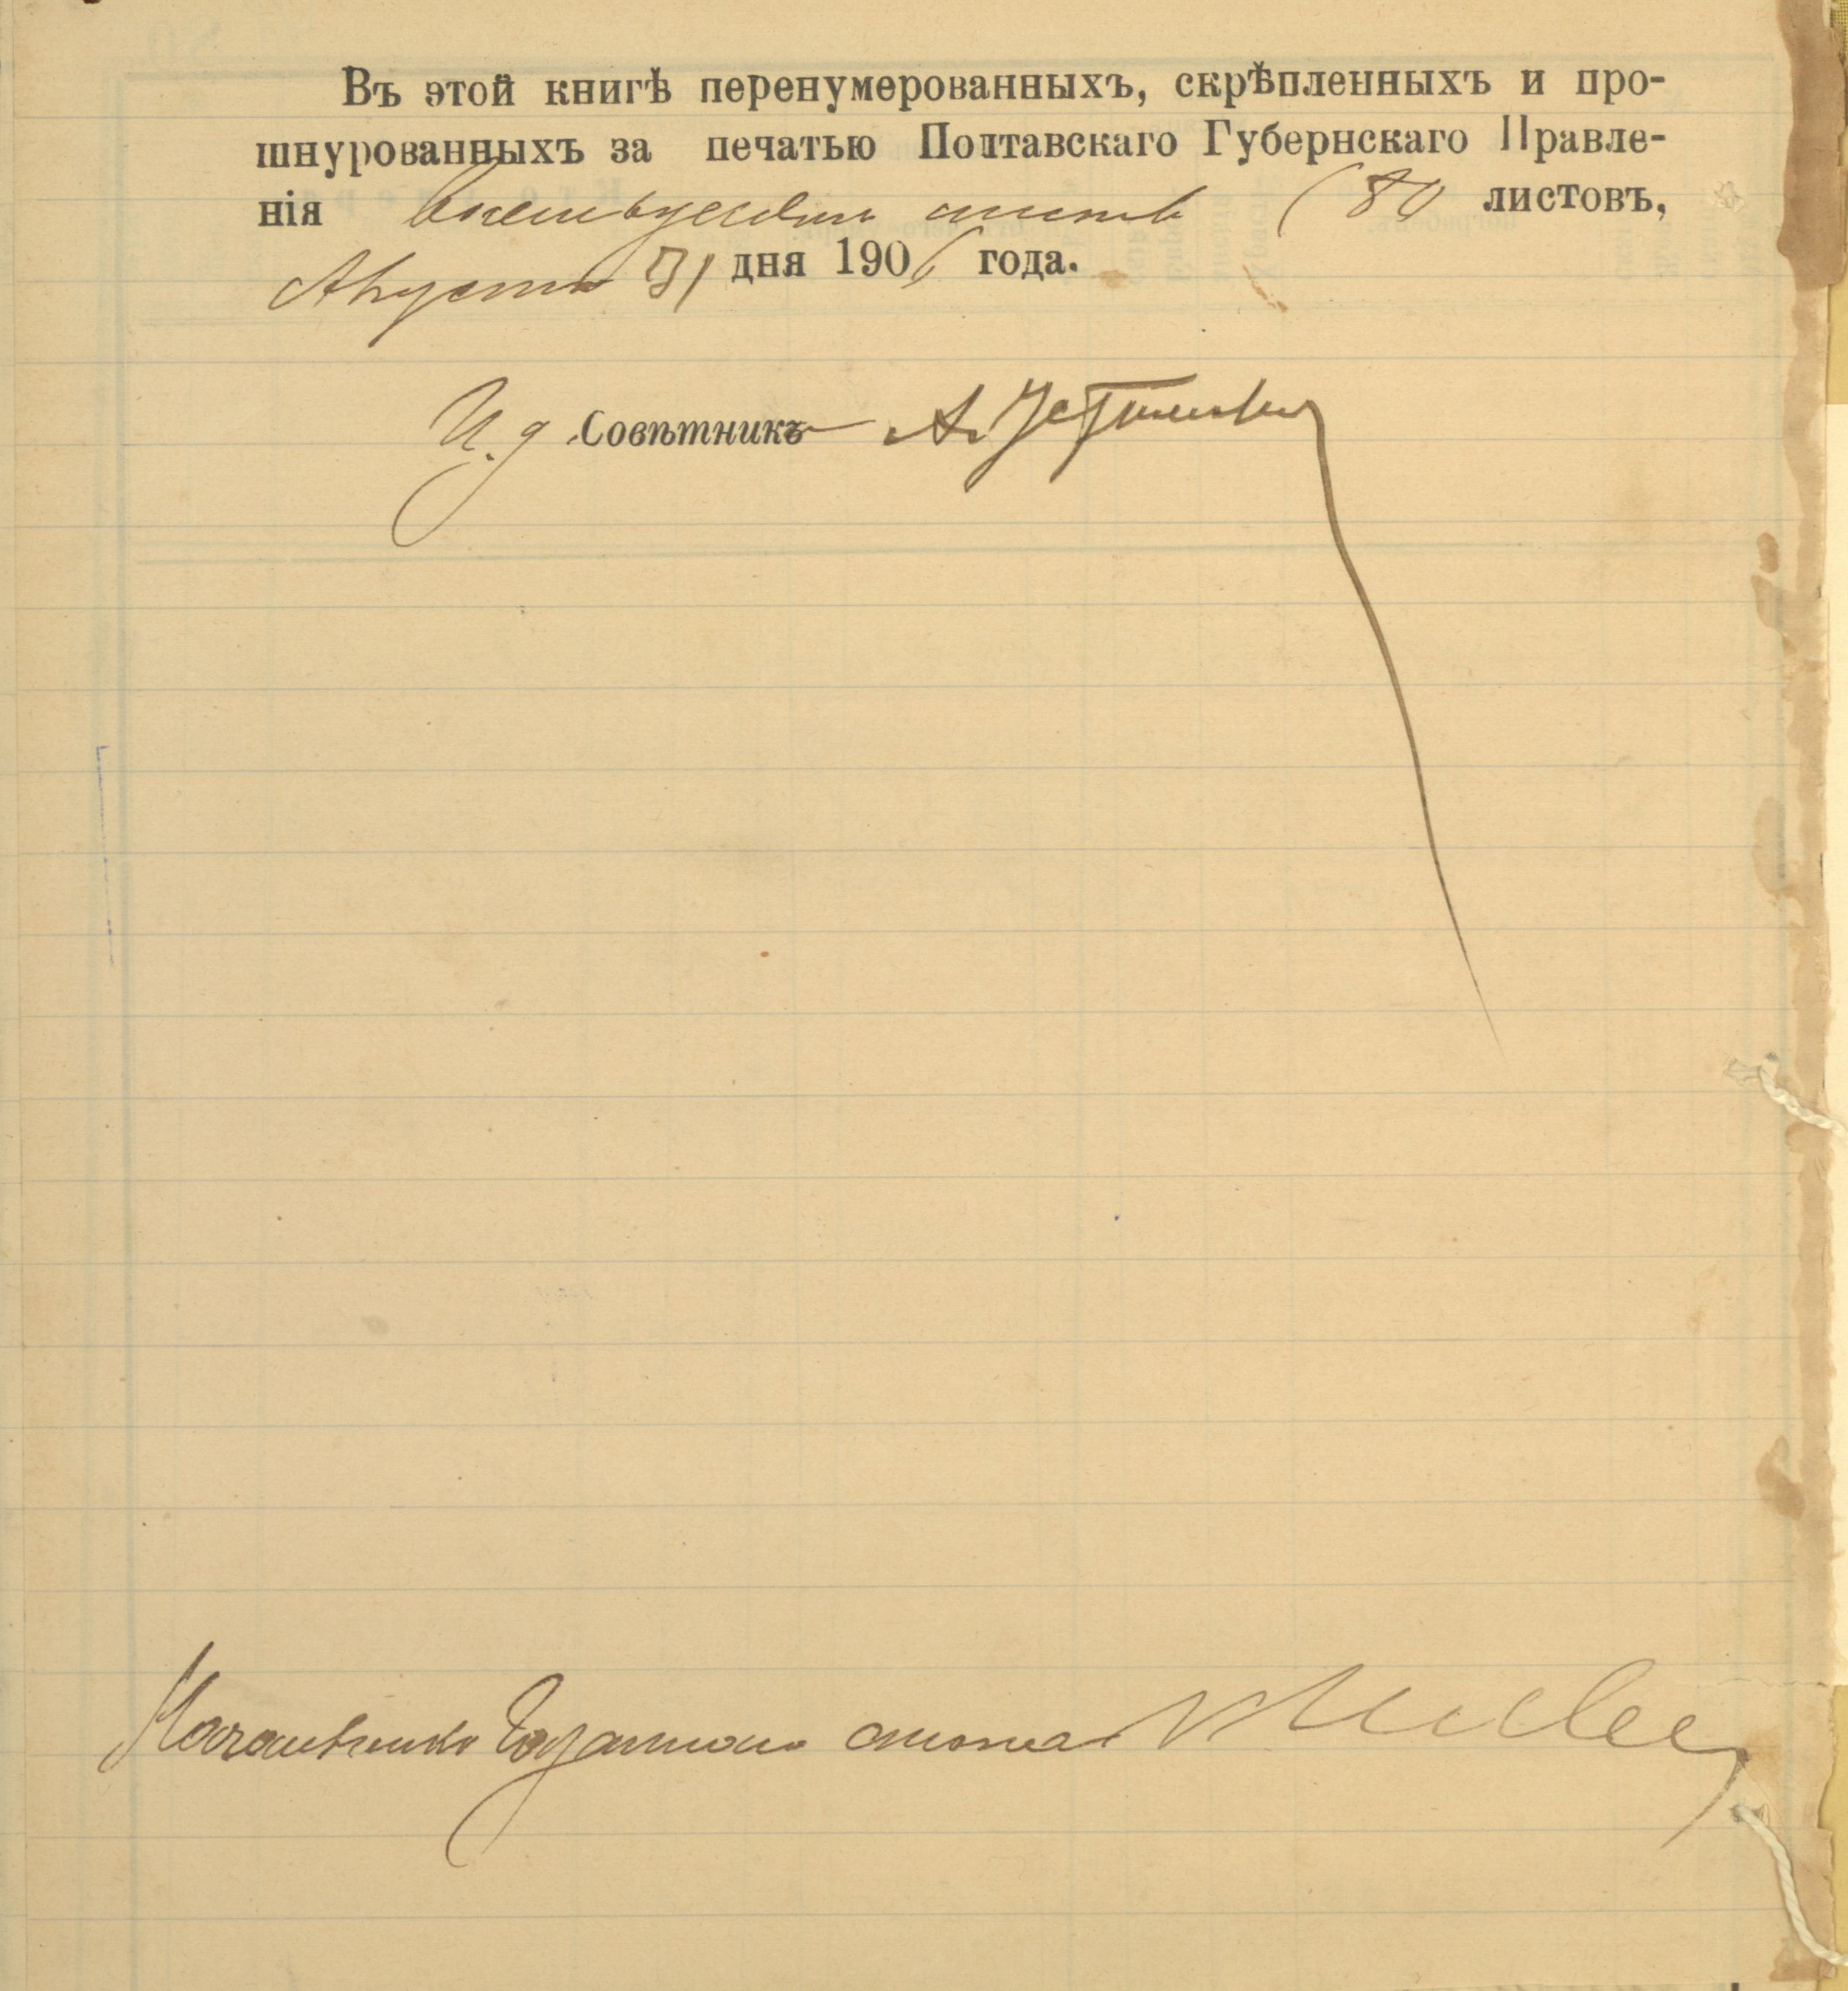 Въ этой книгѣ перенумерованныхъ, скрѣпленныхъ и про-
шнурованныхъ за печатью Полтавскаго Губернскаго Правле-
нія восемьдесятъ листовъ (80 листовъ,
Августа 31 дня 1906 года.
И. д. Совѣтникъ А.
Начальникъ стола